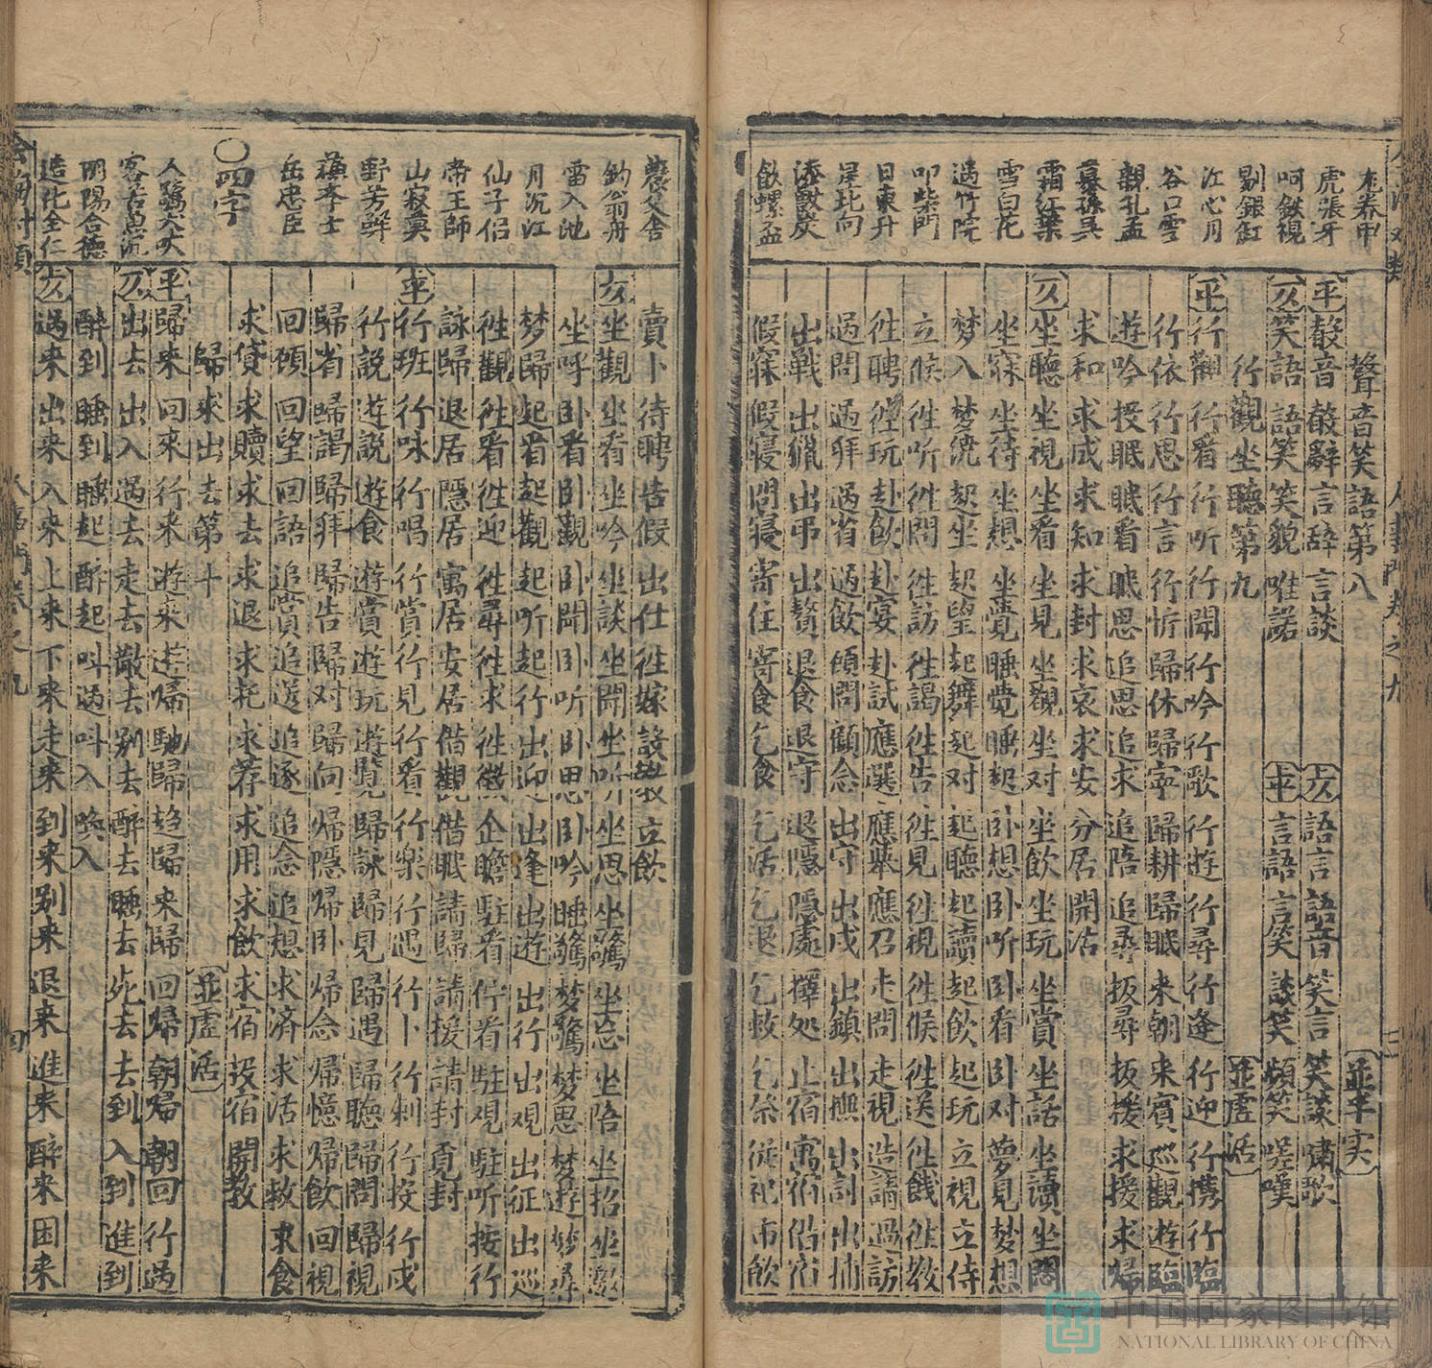 龙卷甲
虎張牙
呵鉄硯
剔銀缸
江心月
谷口雲
親孔孟
慕孫吳
霜紅葉
雪白花
過竹院
叩柴門
日東升
星北向
添獸炭
飲螺盃
聲音笑語第八
並半实
平 散音 散辭 言辞 言談
仄 語言 語音 笑言 笑談 嘯歌
仄 笑語 語笑 笑貌 唯諾
平 言語 言笑 談笑 頻笑 嗟嘆
行觀坐聽第九
並虛活
平 行觀 行看 行听 行聞 行吟 行歌 行遊 行尋 行逢 行迎 行携 行臨
行依 行思 行言 行忻 歸休 歸寧 歸耕 歸眠 来朝 来賓 巡觀 遊臨
遊吟 投眠 眠看 眠思 追思 追求 追陪 追尋 扳尋 扳援 求援 求歸
求和 求成 求知 求封 求哀 求安 分居 開活
仄 坐聽 坐視 坐看 坐見 坐觀 坐对 坐飲 坐玩 坐賞 坐話 坐讀 坐閱
坐寐 坐待 坐想 坐覺 睡觉 睡起 卧想 卧听 卧看 卧对 夢見 梦想
梦入 梦流 起坐 起望 起舞 起对 起聽 起讀 起飲 起玩 立視 立侍
立候 徃听 徃問 徃訪 徃謁 徃告 徃見 徃視 徃候 徃送 徃餞 徃教
徃聘 徃玩 赴飲 赴宴 赴試 應選 應舉 應召 走問 走視 造請 過訪
過問 過拜 過省 過飲 傾問 顧念 出守 出戍 出鎮 出撫 出討 出捕
出戰 出獵 出弔 出贅 退食 退守 退隱 隱處 擇処 止宿 寓宿 借宿
假寐 假寢 問寝 寄住 寄食 乞食 乞活 乞退 乞救 乞祭 從祀 沛飲
農父舍
釣翁舟
雷入池
月沉江
仙子侣
帝王師
山寂寞
野芳鮮
蘓李士
岳忠臣
〇四字
人驚犬吠
客舌魚沉
陰陽合德
造化全仁
賣卜 待聘 告假 出仕 徃嫁 設教 立飲
仄 坐觀 坐看 坐吟 坐談 坐聞 坐听 坐思 坐驚 坐忘 坐陪 坐招 坐邀
坐呼 卧看 卧觀 卧聞 卧听 卧思 卧吟 睡驚 梦驚 梦思 梦遊 梦尋
梦歸 起看 起觀 起听 起行 出迎 出逢 出遊 出行 出观 出征 出巡
徃觀 徃看 徃迎 徃尋 徃求 徃徵 企瞻 駐看 佇看 駐观 駐听 按行
詠歸 退居 隱居 寓居 安居 借觀 借眠 請歸 請援 請封 覓封
平 行班 行咏 行唱 行賞 行見 行看 行樂 行遇 行卜 行刺 行按 行戍
行説 遊説 遊食 遊賞 遊玩 遊覽 歸詠 歸見 歸遇 歸聽 歸閱 歸視
歸省 歸謁 歸拜 歸告 歸对 歸向 帰隱 帰卧 帰念 帰憶 帰飲 回視
回顧 回望 回語 追賞 追送 追逐 追念 追想 求済 求活 求救 求食
求貸 求贖 求去 求退 求托 求荐 求用 求飲 求宿 投宿 開教
歸來出去第十
並虛活
平 歸来 回來 行来 遊來 遊歸 馳歸 趋歸 来歸 回帰 朝帰 朝回 行過
仄 出去 出入 過去 走去 散去 别去 醉去 睡去 死去 去到 入到 進到
醉到 睡到 睡起 醉起 叫過 叫入 喚入
仄 過来 出来 入来 上来 下来 走来 到来 别来 退来 進来 醉来 困来
中国国家图书馆
NATIONAL LIBRARY OF CHINA